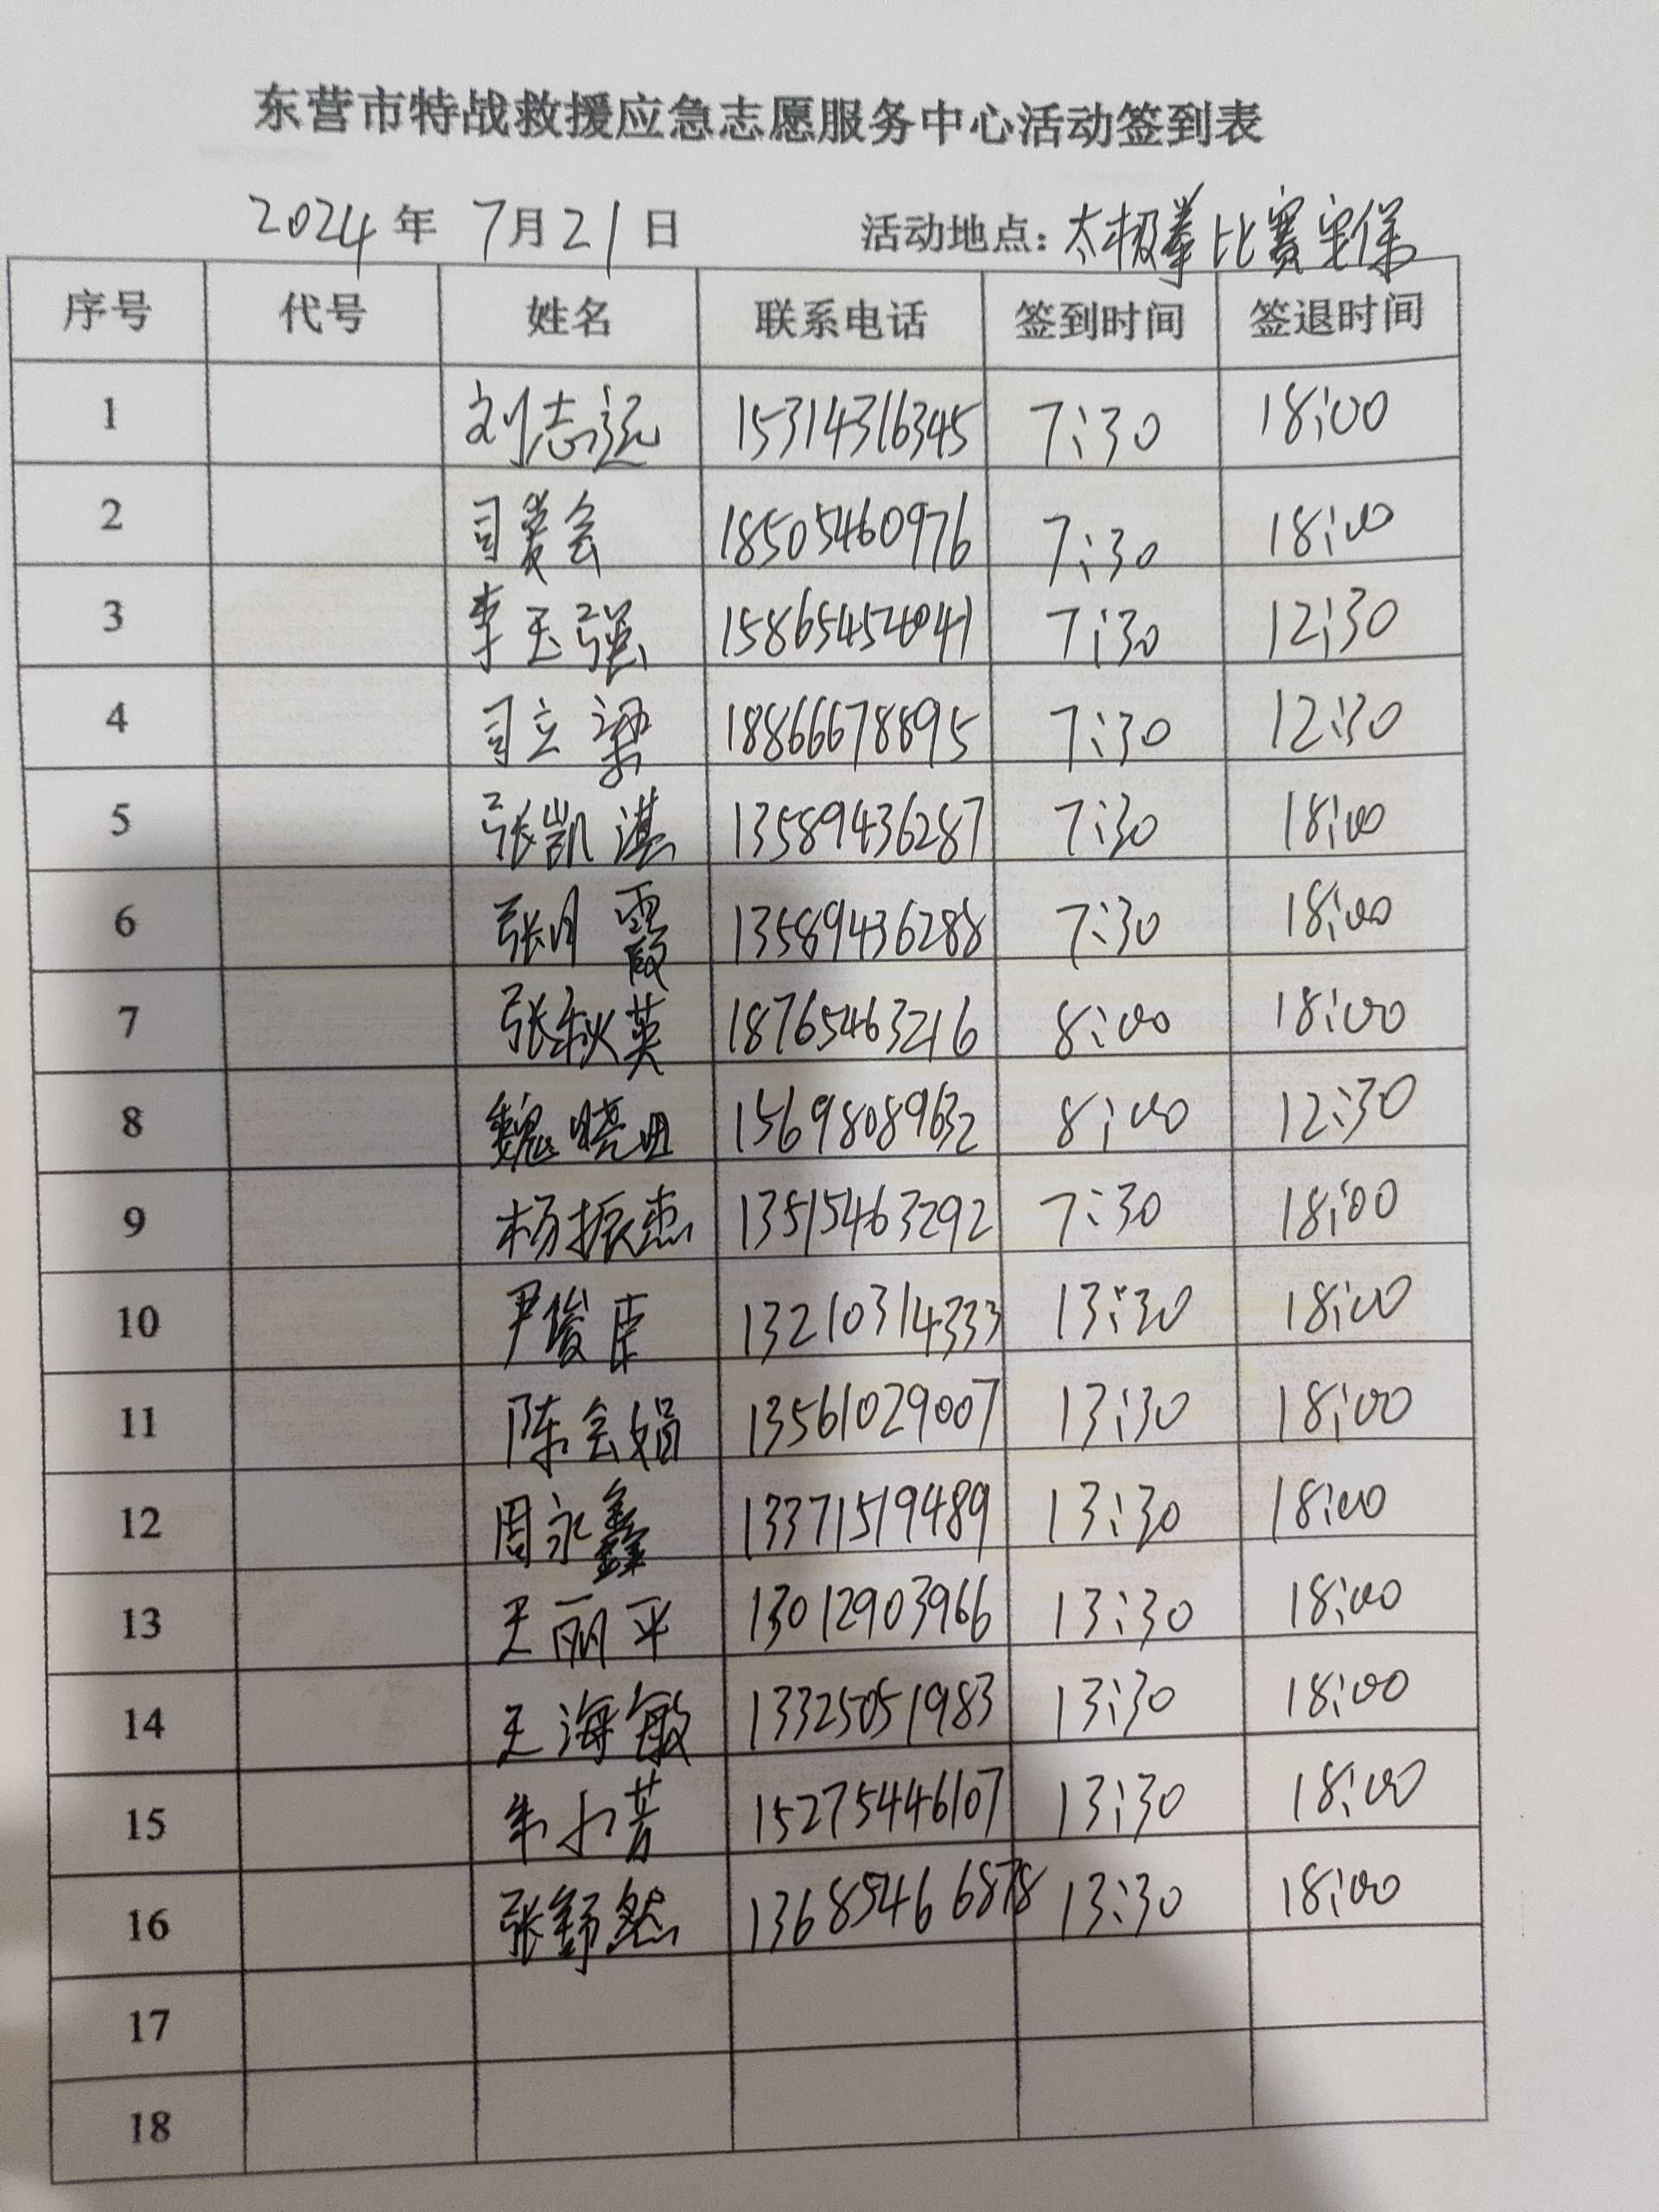 东营市特战救援应急志愿服务中心活动签到表
2024年 7月21日 活动地点:太极拳比赛安保
序号 代号 姓名 联系电话 签到时间 签退时间
1 刘志远 15314316345 7:30 18:00
2 司爱会 18505460976 7:30 18:00
3 李玉强 7:30 12:30
4 司立梁 18866678895 7:30 12:30
5 张凯湛 13589436287 7:30 18:00
6 张月霞 13589436288 7:30 18:00
7 张秋英 18765463216 8:00 18:00
8 魏晓 15698089632 8:00 12:30
9 杨振杰 13515463292 7:30 18:00
10 尹俊臣 13210314333 13:30 18:00
11 陈会娟 13561029007 13:30 18:00
12 周永鑫 13371519489 13:30 18:00
13 王丽平 13012903966 13:30 18:00
14 王海敏 13325051983 13:30 18:00
15 朱小芳 15275446107 13:30 18:00
16 张舒然 13685466878 13:30 18:00
17
18